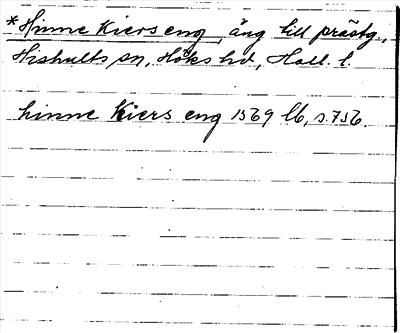 *Hinne Kiers eng, äng till prästg,
Hishults sn, Höks hd, Hall. l.
hinne Kiers eng 1569 lb, s.756.